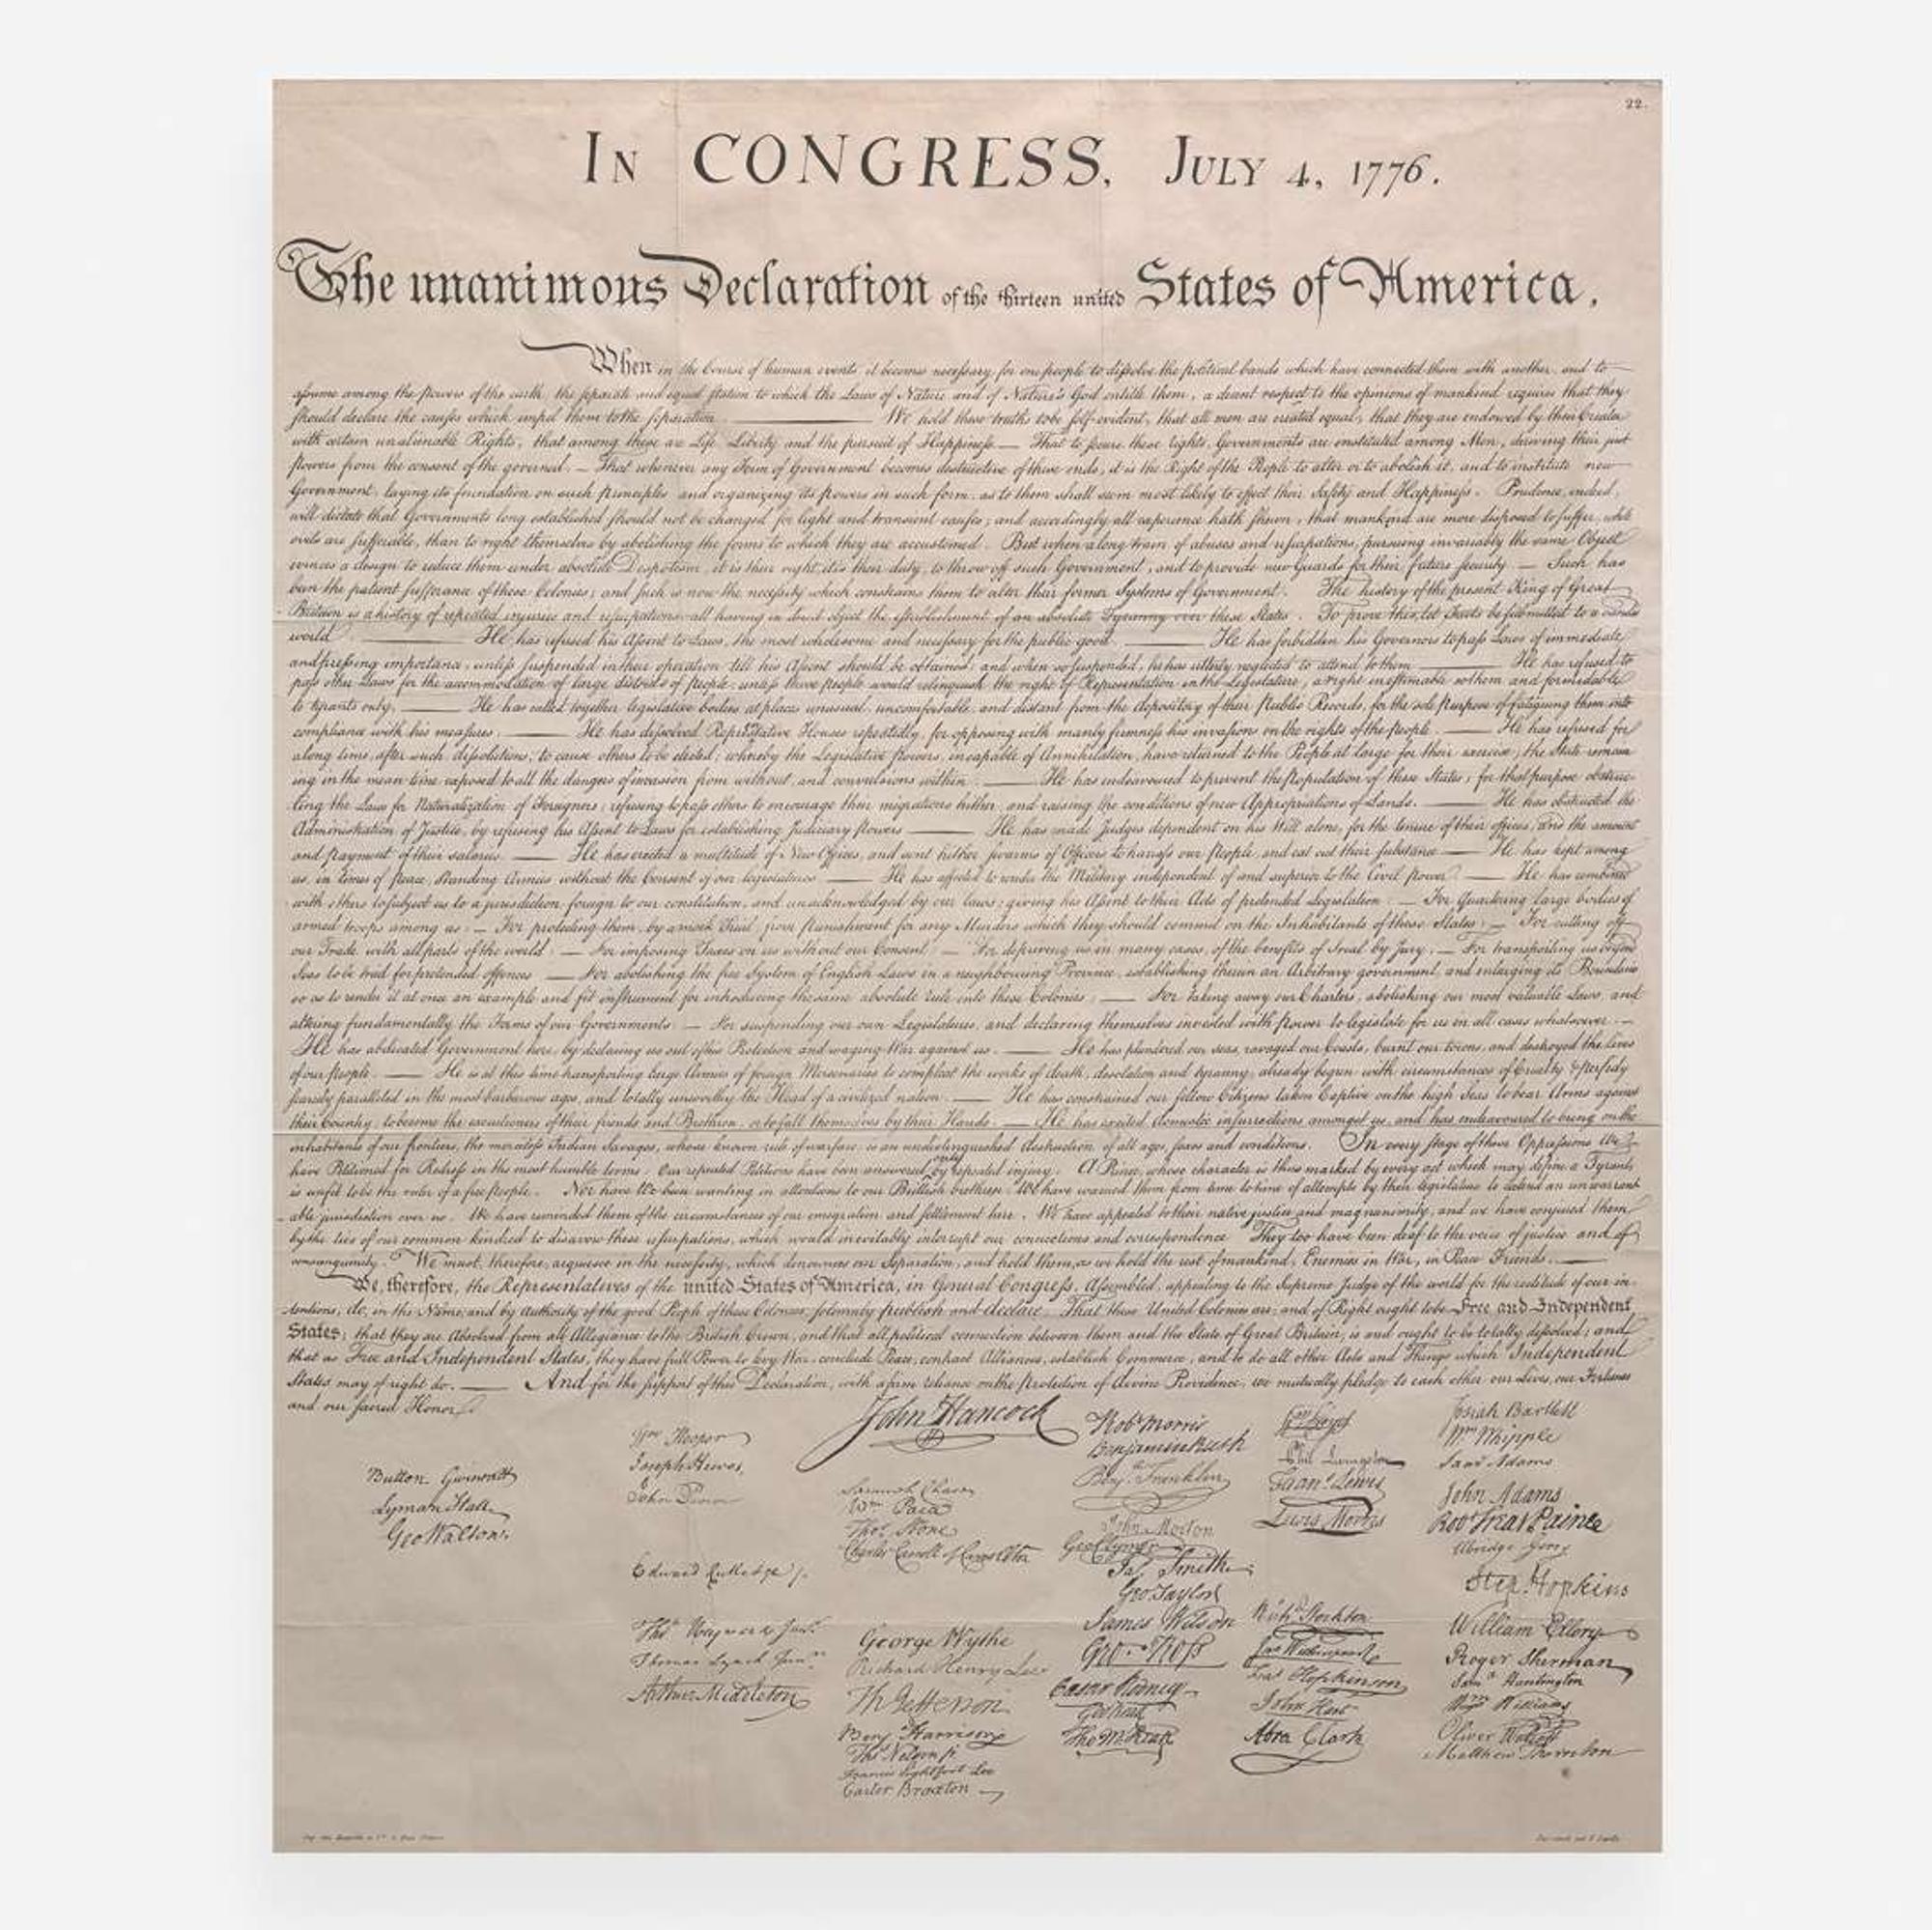 22.
In CONGRESS, July 4, 1776.
The unanimous Declaration of the thirteen united States of America,
When in the Course of human events, it becomes necessary for one people to dissolve the political bands which have connected them with another, and to
assume among the powers of the earth, the separate and equal station to which the Laws of Nature and of Nature's God entitle them, a decent respect to the opinions of mankind requires that they
should declare the causes which impel them to the separation. — We hold these truths to be self-evident, that all men are created equal, that they are endowed by their Creator
with certain unalienable Rights, that among these are Life, Liberty and the pursuit of Happiness. — That to secure these rights, Governments are instituted among Men, deriving their just
powers from the consent of the governed, — That whenever any Form of Government becomes destructive of these ends, it is the Right of the People to alter or to abolish it, and to institute new
Government, laying its foundation on such principles and organizing its powers in such form, as to them shall seem most likely to effect their Safety and Happiness. Prudence, indeed,
will dictate that Governments long established should not be changed for light and transient causes; and accordingly all experience hath shewn, that mankind are more disposed to suffer, while
evils are sufferable, than to right themselves by abolishing the forms to which they are accustomed. But when a long train of abuses and usurpations, pursuing invariably the same Object
evinces a design to reduce them under absolute Despotism, it is their right, it is their duty, to throw off such Government, and to provide new Guards for their future security. — Such has
been the patient sufferance of these Colonies; and such is now the necessity which constrains them to alter their former Systems of Government. The history of the present King of Great
Britain is a history of repeated injuries and usurpations, all having in direct object the establishment of an absolute Tyranny over these States. To prove this, let Facts be submitted to a candid
world. — He has refused his Assent to Laws, the most wholesome and necessary for the public good. — He has forbidden his Governors to pass Laws of immediate
and pressing importance, unless suspended in their operation till his Assent should be obtained; and when so suspended, he has utterly neglected to attend to them. — He has refused to
pass other Laws for the accommodation of large districts of people, unless those people would relinquish the right of Representation in the Legislature, a right inestimable to them and formidable
to tyrants only. — He has called together legislative bodies at places unusual, uncomfortable, and distant from the depository of their Public Records, for the sole purpose of fatiguing them into
compliance with his measures. — He has dissolved Representative Houses repeatedly, for opposing with manly firmness his invasions on the rights of the people. — He has refused for
a long time, after such dissolutions, to cause others to be elected; whereby the Legislative powers, incapable of Annihilation, have returned to the People at large for their exercise; the State remain
ing in the mean time exposed to all the dangers of invasion from without, and convulsions within. — He has endeavoured to prevent the population of these States; for that purpose obstruc-
ting the Laws for Naturalization of Foreigners; refusing to pass others to encourage their migrations hither, and raising the conditions of new Appropriations of Lands. — He has obstructed the
Administration of Justice, by refusing his Assent to Laws for establishing Judiciary powers — He has made Judges dependent on his Will alone, for the tenure of their offices, and the amount
and payment of their salaries. — He has erected a multitude of New Offices, and sent hither swarms of Officers to harrass our people, and eat out their substance — He has kept among
us, in times of peace, Standing Armies without the Consent of our legislatures — He has affected to render the Military independent of and superior to the Civil power. — He has combined
with others to subject us to a jurisdiction foreign to our constitution, and unacknowledged by our laws; giving his Assent to their Acts of pretended Legislation: — For Quartering large bodies of
armed troops among us: — For protecting them, by a mock Trial, from punishment for any Murders which they should commit on the Inhabitants of these States: — For cutting off
our Trade with all parts of the world: — For imposing Taxes on us without our Consent: — For depriving us in many cases, of the benefits of Trial by Jury: — For transporting us beyond
Seas to be tried for pretended offences — For abolishing the free System of English Laws in a neighbouring Province, establishing therein an Arbitrary government, and enlarging its Boundaries
so as to render it at once an example and fit instrument for introducing the same absolute rule into these Colonies: — For taking away our Charters, abolishing our most valuable Laws, and
altering fundamentally the Forms of our Governments: — For suspending our own Legislatures, and declaring themselves invested with power to legislate for us in all cases whatsoever. —
He has abdicated Government here, by declaring us out of his Protection and waging War against us. — He has plundered our seas, ravaged our Coasts, burnt our towns, and destroyed the lives
of our people. — He is at this time transporting large Armies of foreign Mercenaries to compleat the works of death, desolation and tyranny, already begun with circumstances of Cruelty & perfidy
scarcely paralleled in the most barbarous ages, and totally unworthy the Head of a civilized nation. — He has constrained our fellow Citizens taken Captive on the high Seas to bear Arms against
their Country, to become the executioners of their friends and Brethren, or to fall themselves by their Hands. — He has excited domestic insurrections amongst us, and has endeavoured to bring on the
inhabitants of our frontiers, the merciless Indian Savages, whose known rule of warfare, is an undistinguished destruction of all ages, sexes and conditions. In every stage of these Oppressions We
have Petitioned for Redress in the most humble terms: Our repeated Petitions have been answered only by repeated injury. A Prince, whose character is thus marked by every act which may define a Tyrant,
is unfit to be the ruler of a free people. Nor have We been wanting in attentions to our Brittish brethren. We have warned them from time to time of attempts by their legislature to extend an unwarrant
able jurisdiction over us. We have reminded them of the circumstances of our emigration and settlement here. We have appealed to their native justice and magnanimity, and we have conjured them
by the ties of our common kindred to disavow these usurpations, which, would inevitably interrupt our connections and correspondence They too have been deaf to the voice of justice and of
consanguinity. We must, therefore, acquiesce in the necessity, which denounces our Separation, and hold them, as we hold the rest of mankind, Enemies in War, in Peace Friends. —
We, therefore, the Representatives of the united States of America, in General Congress, Assembled, appealing to the Supreme Judge of the world for the rectitude of our in-
tentions, do, in the Name, and by Authority of the good People of these Colonies, solemnly publish and declare, That these United Colonies are, and of Right ought to be Free and Independent
States; that they are Absolved from all Allegiance to the British Crown, and that all political connection between them and the State of Great Britain, is and ought to be totally dissolved; and
that as Free and Independent States, they have full Power to levy War, conclude Peace, contract Alliances, establish Commerce, and to do all other Acts and Things which Independent
States may of right do. — And for the support of this Declaration, with a firm reliance on the protection of divine Providence, we mutually pledge to each other our Lives, our Fortunes
and our sacred Honor.
Button Gwinnett
Lyman Hall
Geo Walton.
Wm Hooper
Joseph Hewes,
John Penn
Edward Rutledge
Thos Heyward Junr
Thomas Lynch Junr
Arthur Middleton
John Hancock
Samuel Chase
Wm Paca
Thos Stone
Charles Carroll of Carrollton
George Wythe
Richard Henry Lee
Th Jefferson
Benj Harrison
Thos Nelson jr
Francis Lightfoot Lee
Carter Braxton
Robt Morris
Benjamin Rush
Benj Franklin
John Morton
Geo Clymer
Jas Smith
Geo Taylor
James Wilson
Geo Ross
Caesar Rodney
Geo Read
Tho M:Kean
Wm Floyd
Phil Livingston
Frans Lewis
Lewis Morris
Richd Stockton
Jno Witherspoon
Fras Hopkinson
John Hart
Abra Clark
Josiah Bartlett
Wm Whipple
Saml Adams
John Adams
Robt Treat Paine
Elbridge Gerry
Step. Hopkins
William Ellery
Roger Sherman
Saml Huntington
Wm Williams
Oliver Wolcott
Matthew Thornton